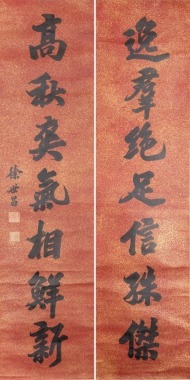 逸羣绝足信殊傑
高秋爽氣相鮮新
徐世昌